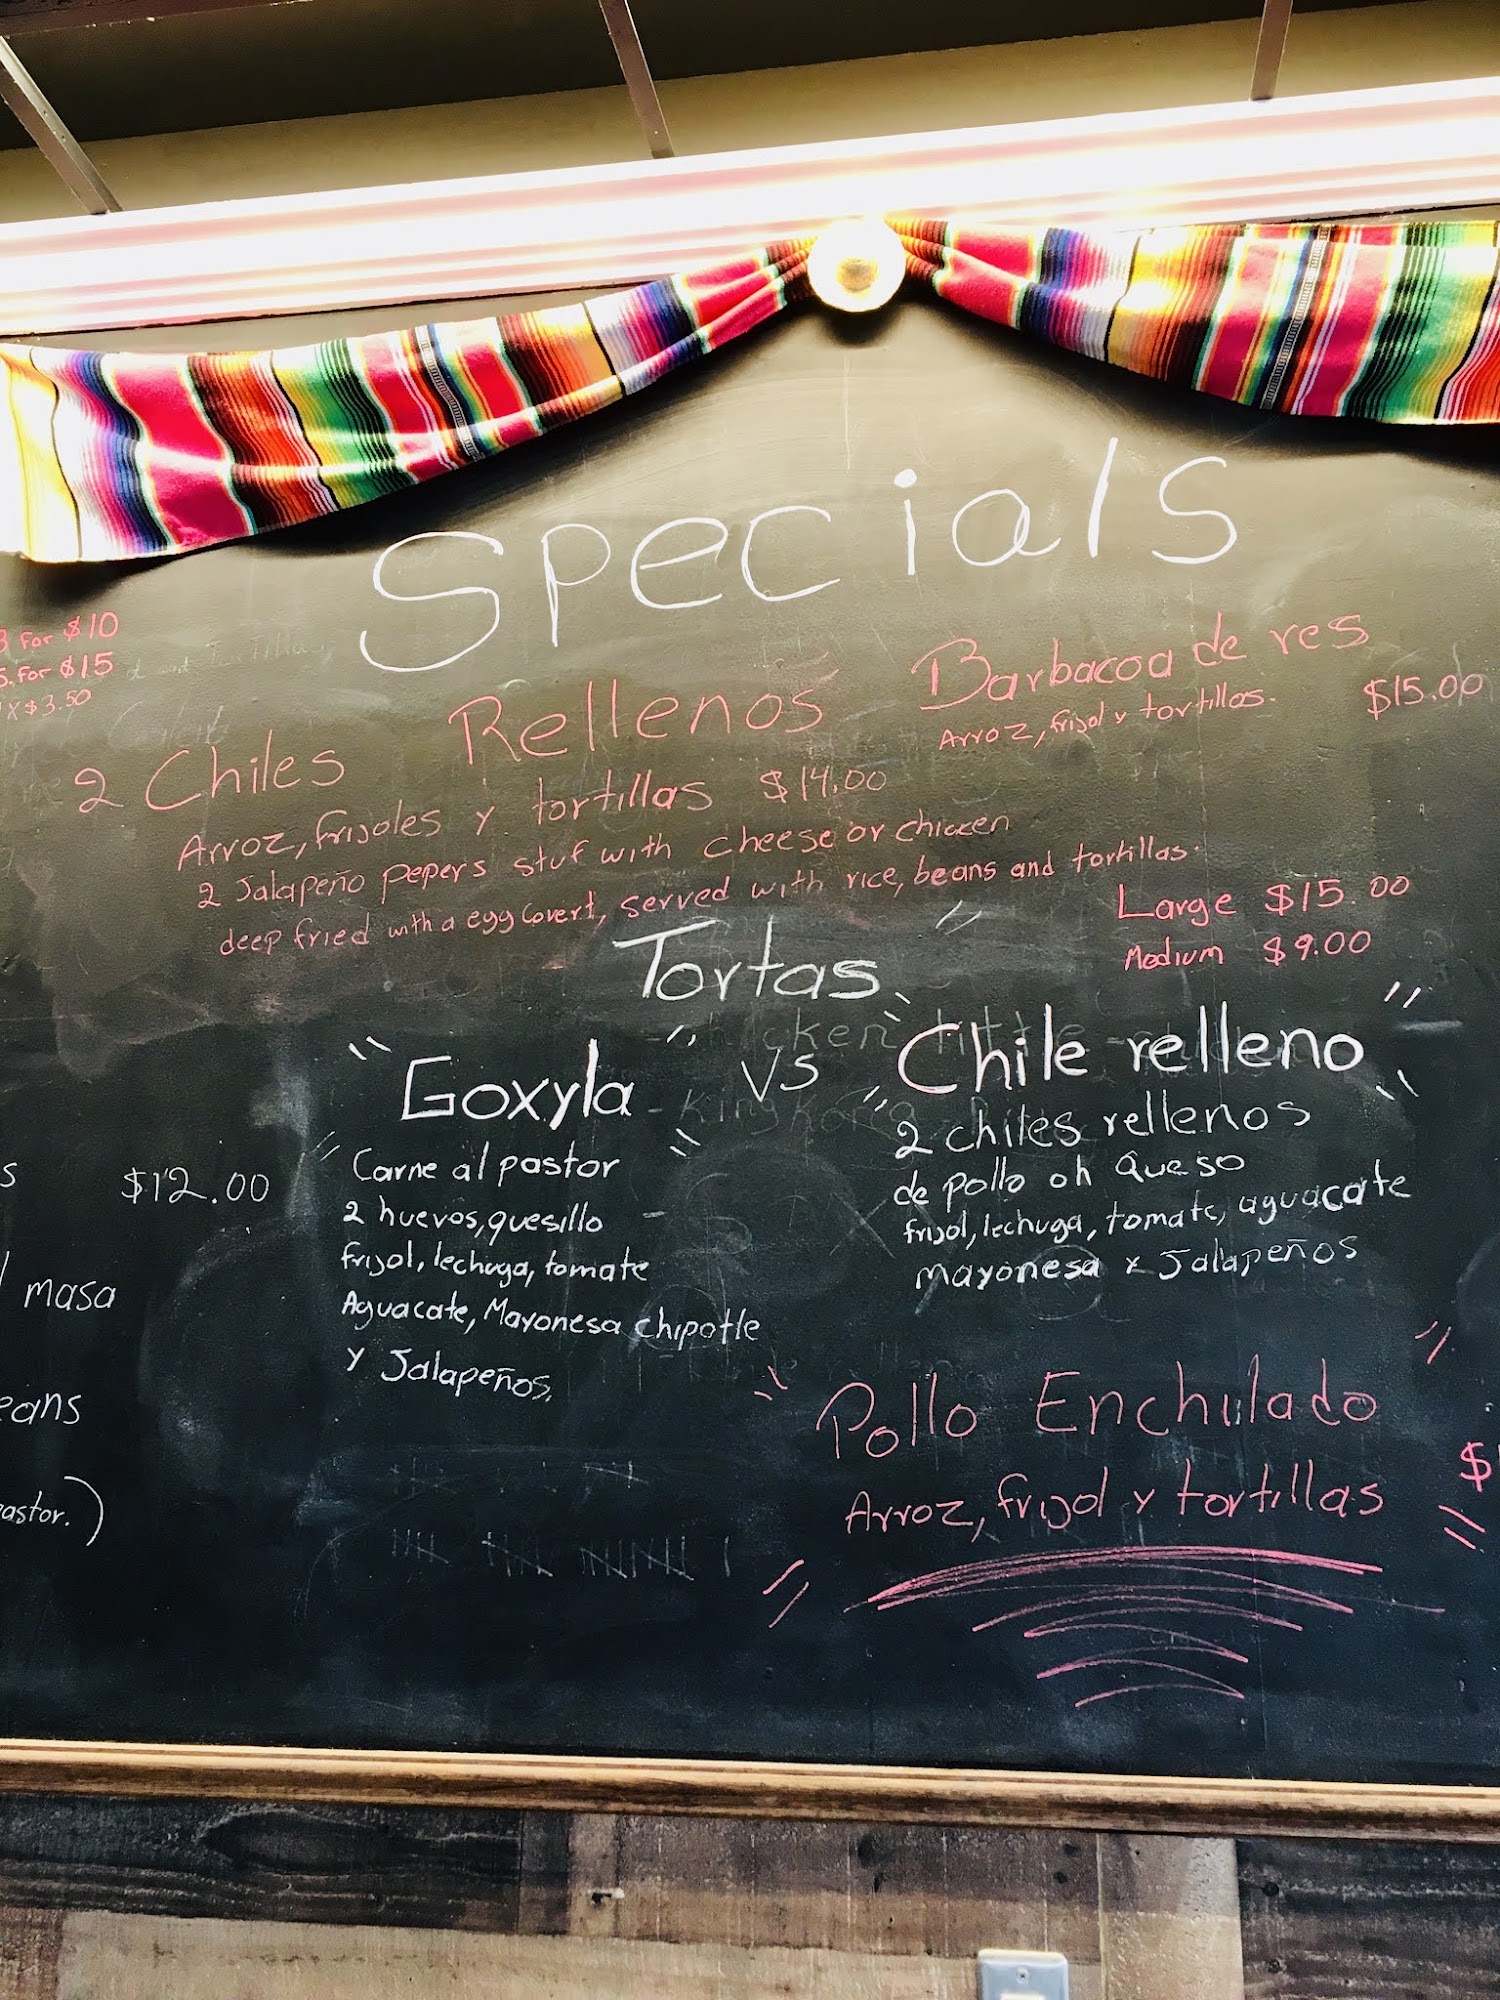 Specials
3 for $10
5. for $15
1 x $3.50
2 Chiles Rellenos
Arroz, frijoles y tortillas $14.00
2 Jalapeño pepers stuf with cheese or chicken
deep fried with a egg covert, served with rice, beans and tortillas.
Barbacoa de res
Arroz, frijol y tortillas.
$15.00
Tortas
Large $15.00
Medium $9.00
"Goxyla"
vs
"Chile relleno"
Carne al pastor
2 huevos, quesillo
frijol, lechuga, tomate
Aguacate, Mayonesa chipotle
y Jalapeños.
2 chiles rellenos
de pollo oh queso
frijol, lechuga, tomate, aguacate
mayonesa y Jalapeños
$12.00
masa
eans
astor.)
Pollo Enchulado
Arroz, frijol y tortillas
$